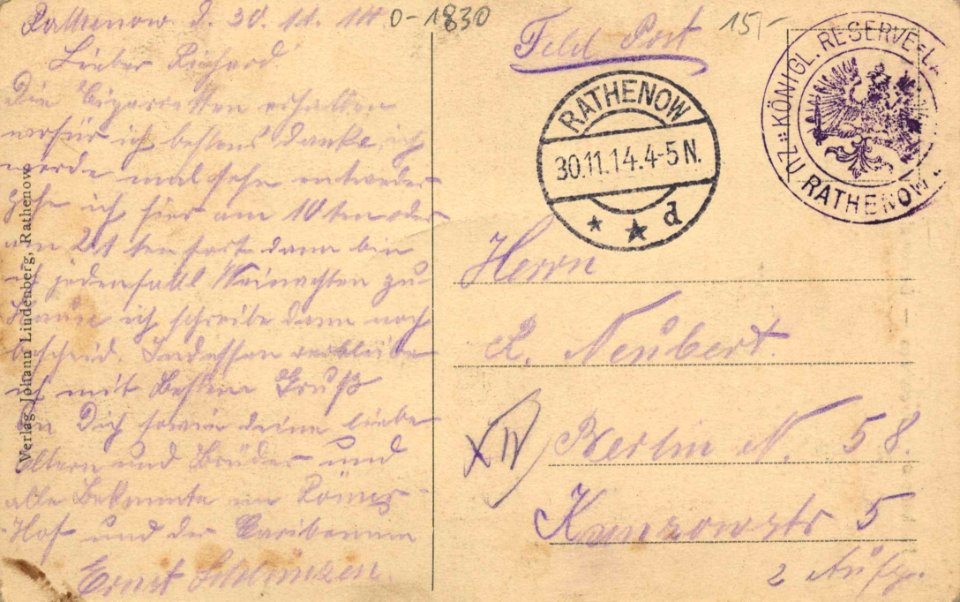 Rathenow d. 30.11.14
Lieber Richard
Die Cigaretten erhalten
wofür ich bestens danke, ich
werde mal sehn entweder
gehe ich hier am 10ten oder
am 21ten fort dann bin
ich jedenfall Weinachten zu
Hause ich schreibe dann noch
bescheid. Indessen verbleibe
ich mit Besten Gruß
an Dich sowie deine liebe
Eltern und Brüder und
alle Bekannte im Römer-
Hof und der
Ernst
Verlag Johann Lindenberg, Rathenow
0-1830
15/-
Feld Post
RATHENOW
30.11.14.4-5N.
* * d
KÖNIGL. RESERVE-LA
ZU RATHENOW
Herrn
R. Neubert.
XIV
Berlin N. 58.
5
2 Aufg.